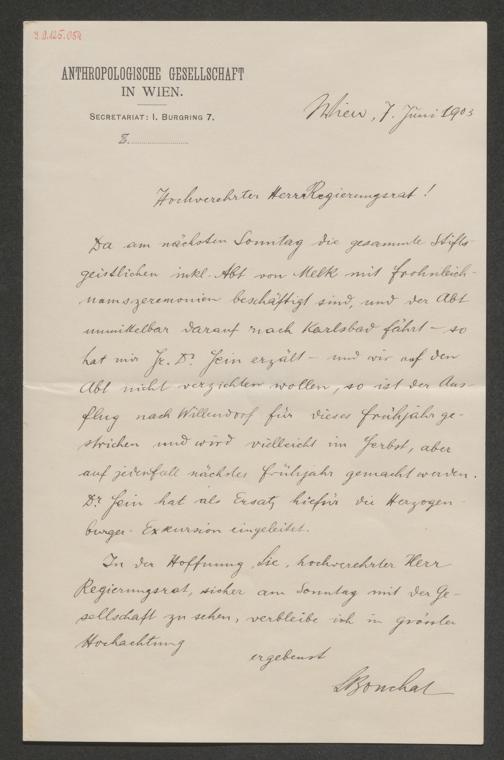 ANTHROPOLOGISCHE GESELLSCHAFT
IN WIEN.
SECRETARIAT: I. BURGRING 7.
Z.
Wien, 7. Juni 1903
Hochverehrter Herr Regierungsrat!
Da am nächsten Sonntag die gesammte Stifts-
geistlichen inkl. Abt von Melk mit Frohnleich-
namszeremonien beschäftigt sind, und der Abt
unmittelbar darauf nach Karlsbad fährt – so
hat mir Hr. Dr. Hein erzält – und wir auf den
Abt nicht verzichten wollen, so ist der Aus-
flug nach Willendorf für dieses Frühjahr ge-
strichen und wird vielleicht im Herbst, aber
auf jedenfall nächstes Frühjahr gemacht werden.
Dr. Hein hat als Ersatz hiefür die Herzogen-
burger-Exkursion eingeleitet.
In der Hoffnung, Sie, hochverehrter Herr
Regierungsrat, sicher am Sonntag mit der Ge-
sellschaft zu sehen, verbleibe ich in grösster
Hochachtung
ergebenst
LBouchal